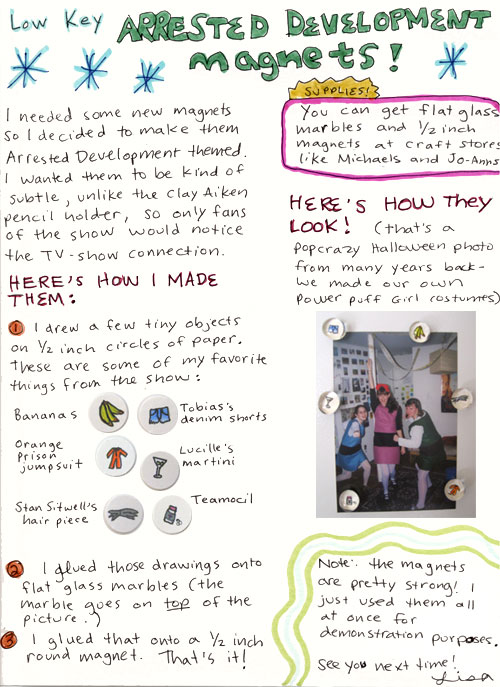 Low Key ARRESTED DEVELOPMENT
magnets!
I needed some new magnets
so I decided to make them
Arrested Development themed.
I wanted them to be kind of
subtle, unlike the Clay Aiken
pencil holder, so only fans
of the show would notice
the TV-show connection.
HERE'S HOW I MADE
THEM:
1 I drew a few tiny objects
on 1/2 inch circles of paper.
These are some of my favorite
things from the show:
Bananas
Tobias's
denim shorts
Orange
Prison
jumpsuit
Lucille's
martini
Stan Sitwell's
hair piece
Teamocil
2 I glued those drawings onto
flat glass marbles (the
marble goes on top of the
picture.)
3 I glued that onto a 1/2 inch
round magnet. That's it!
SUPPLIES!
You can get flat glass
marbles and 1/2 inch
magnets at craft stores
like Michaels and Jo-Anns
HERE'S HOW THEY
LOOK! (that's a
popcrazy Halloween photo
from many years back-
we made our own
Power Puff Girl costumes)
Note: the magnets
are pretty strong! I
just used them all
at once for
demonstration purposes.
See you next time!
Lisa